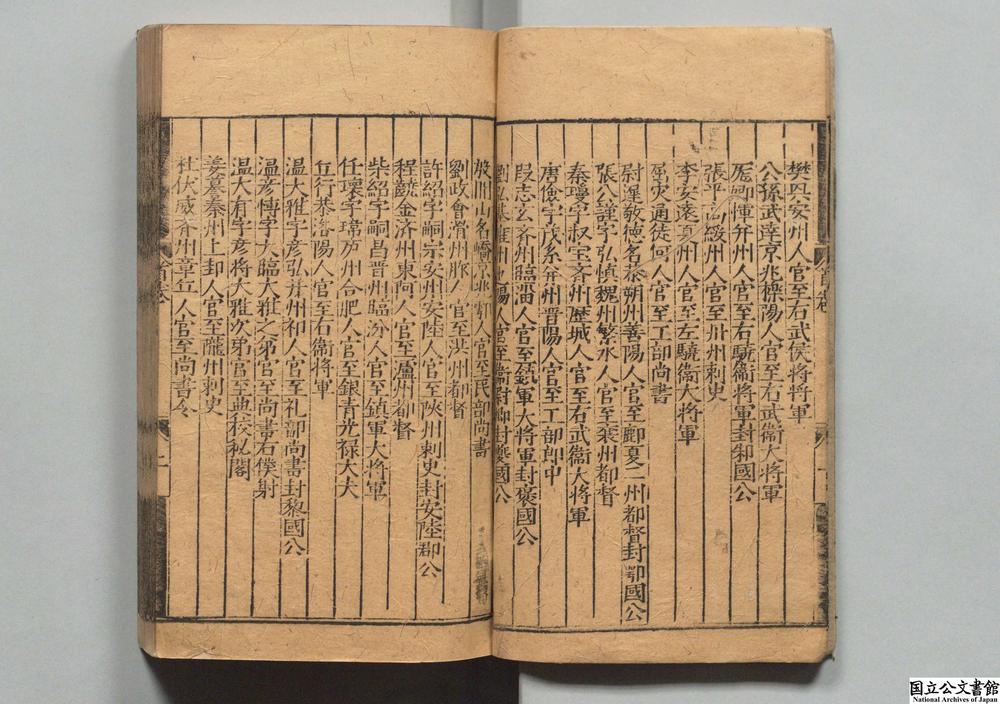 樊兴安州人官至右武侯将将軍
公孫武達京兆櫟陽人官至右武衞大将軍
龎卿惲并州人官至右驍衞将軍封邾國公
張平高綏州人官至丗州刺史
李安遠夏州人官至左驍衞大将軍
屈突通徒何人官至工部尚書
尉遲敬德名恭朔州善陽人官至鄜夏二州都督封鄂國公
張公謹字弘慎魏州繁水人官至襄州都督
秦瓊字叔宝斉州歷城人官至右武衞大将軍
唐儉字茂系并州晋陽人官至工部郎中
段志玄斉州臨淄人官至鎮軍大将軍封褒國公
劉弘基雍州池陽人官至衞尉卿封夔國公
殷開山名嶠京兆鄠人官至民部尚書
劉政會滑州胙人官至洪州都督
許紹字嗣宗安州安陸人官至陝州刺史封安陸郡公
程蘶金济州東阿人官至瀘州都督
柴紹字嗣昌晋州臨汾人官至鎮軍大将軍
任瓌字瑋庐州合肥人官至銀青光禄大夫
丘行恭洛陽人官至右衞将軍
溫大雅字彦弘并州祁人官至礼部尚書封黎國公
溫彦博字大臨大雅之弟官至尚書右僕射
溫大有字彦将大雅次弟官至典校秘閣
姜謩秦州上邽人官至隴州刺史
杜伏威斉州章丘人官至尚書令
首卷
二
国立公文書館
National Archives of Japan